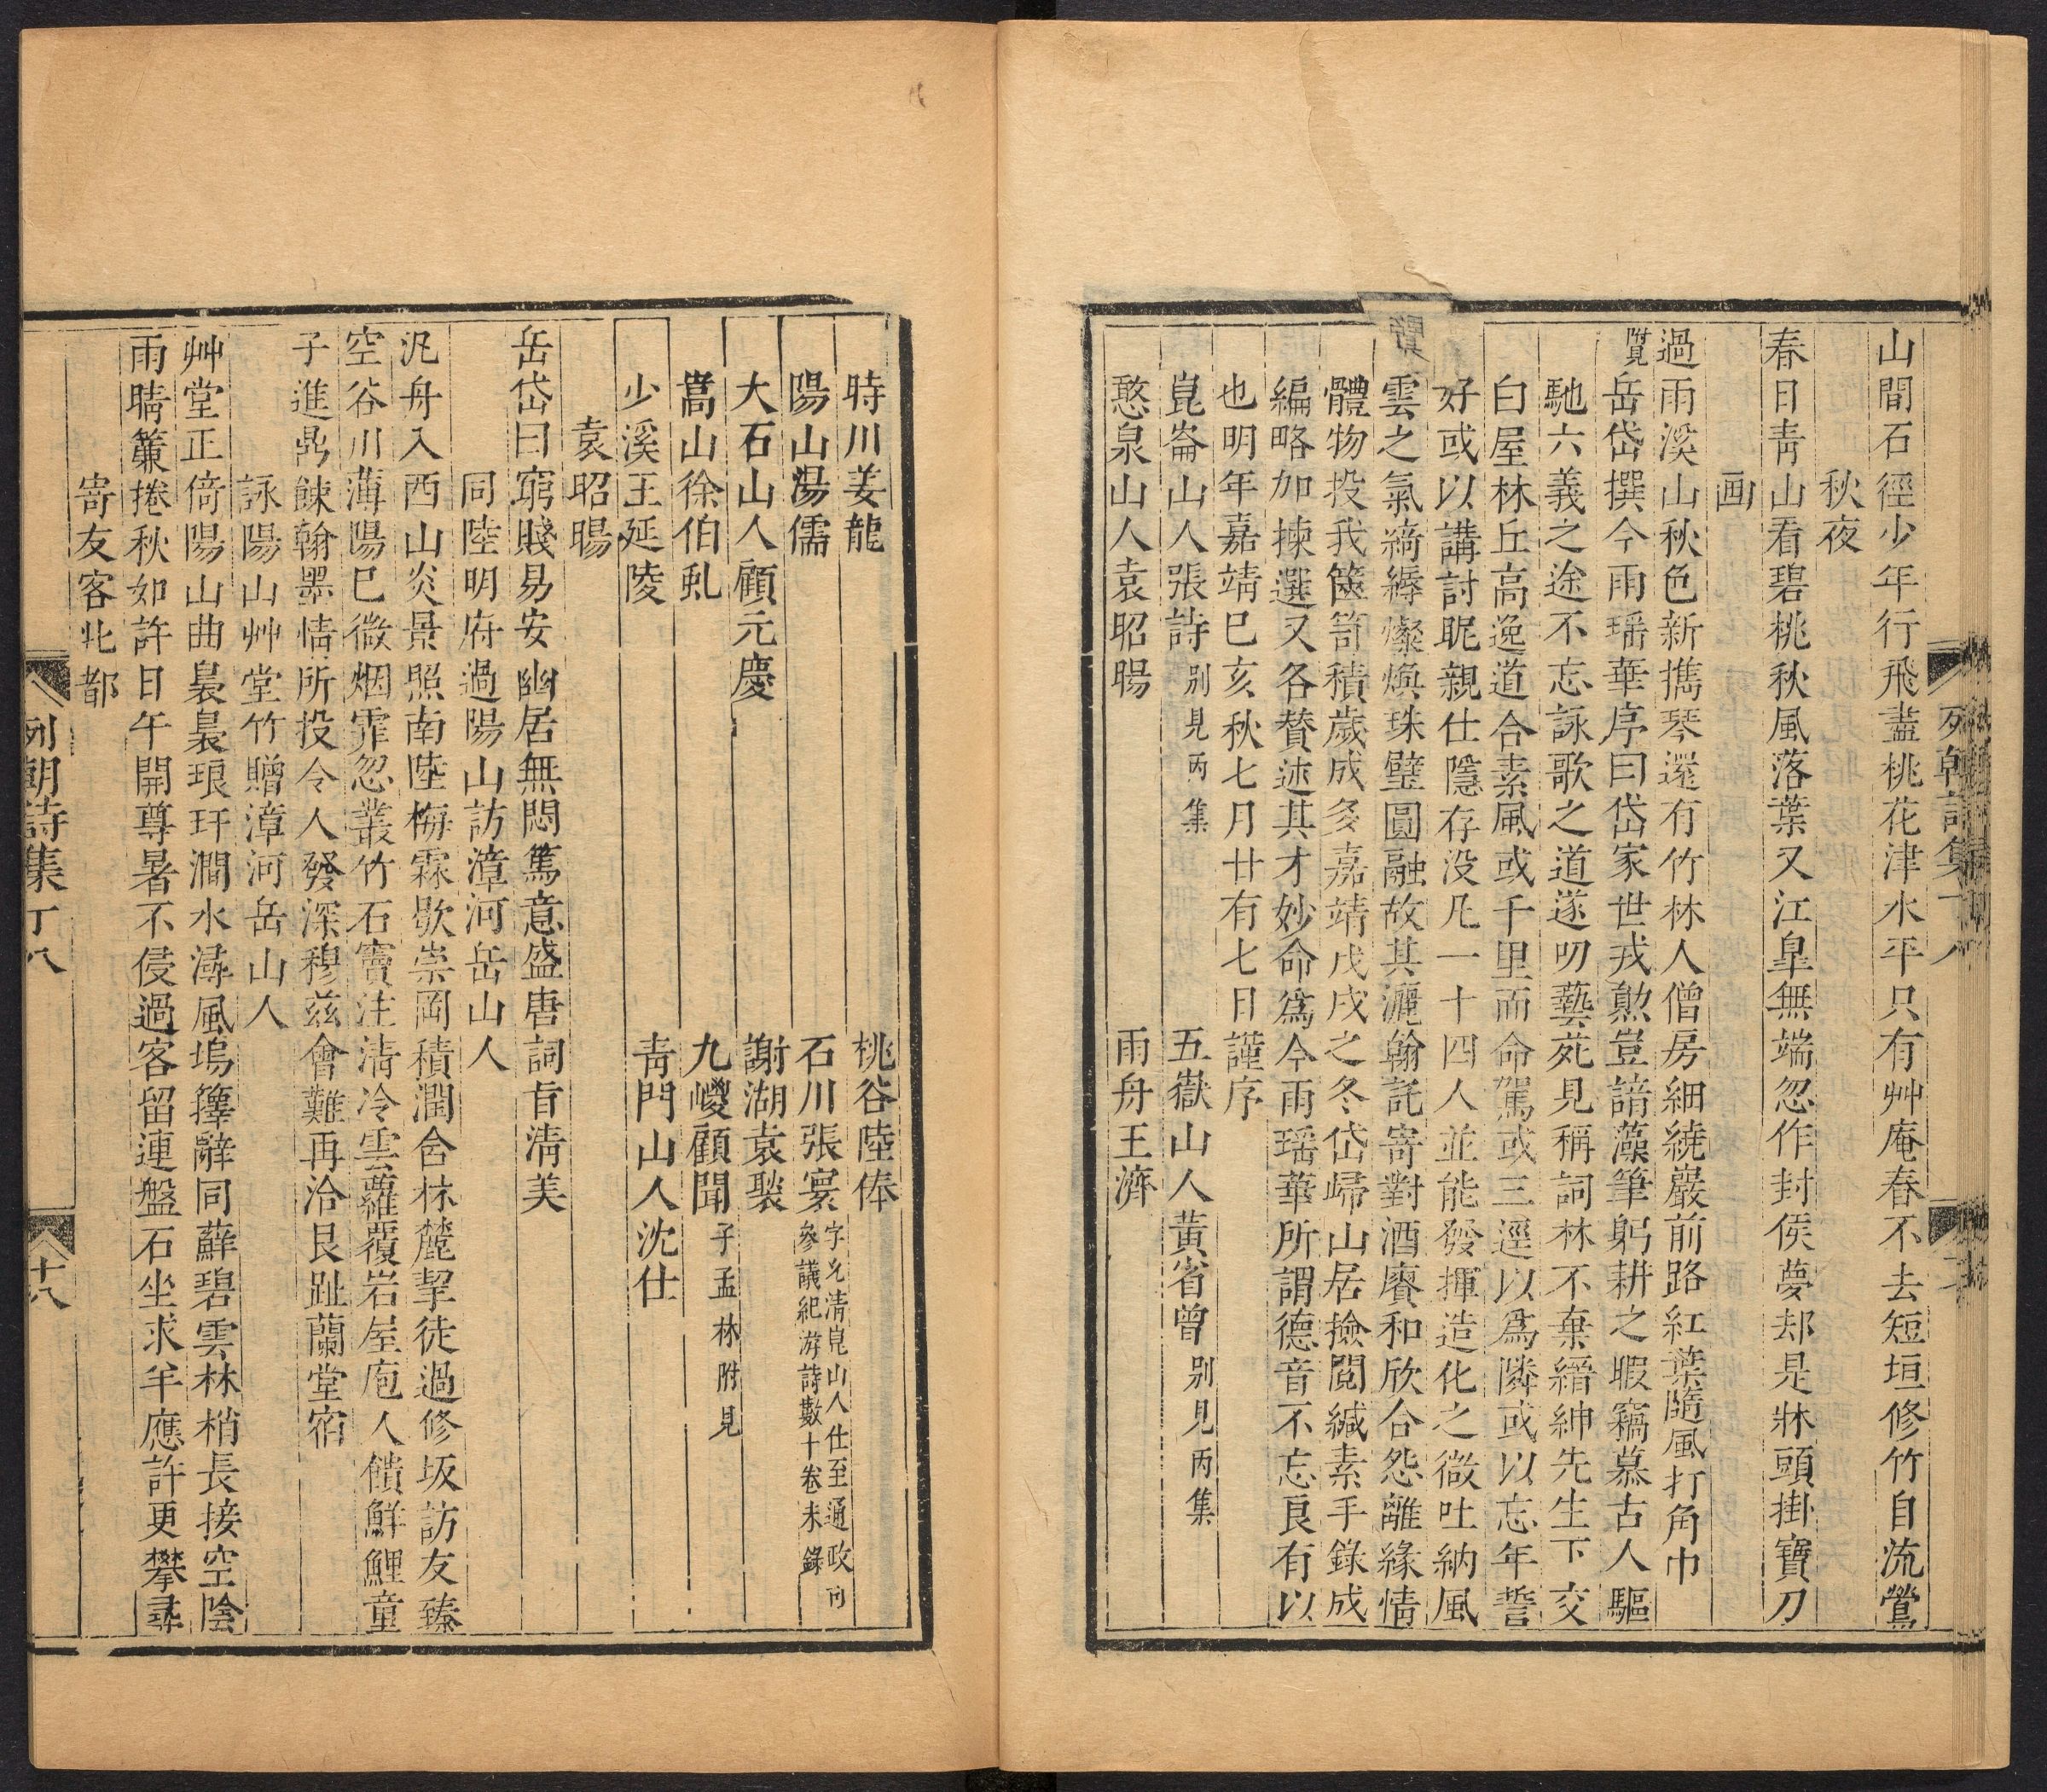 山間石徑少年行飛盡桃花津水平只有艸庵春不去短垣修竹自流鶯
秋夜
春日靑山看碧桃秋風落葉又江臯無端忽作封侯夢却是牀頭掛寶刀
画
過雨溪山秋色新攜琴還有竹林人僧房細繞巖前路紅葉隨風打角巾
覽岳岱撰今雨瑶華序曰岱家世戎勲豈諳藻筆躬耕之暇竊慕古人驅
馳六義之途不忘詠歌之道遂叨藝苑見稱詞林不棄縉紳先生下交
白屋林丘高逸道合素風或千里而命駕或三逕以爲隣或以忘年誓
好或以講討昵親仕隱存没凡一十四人並能發揮造化之微吐納風
雲之氣綺縟燦煥珠璧圓融故其灑翰託寄對酒賡和欣合怨離緣情
體物投我篋笥積歲成多嘉靖戊戌之冬岱歸山居撿閱緘素手錄成
編略加揀選又各賛述其才妙命爲今雨瑶華所謂德音不忘良有以
也明年嘉靖巳亥秋七月廿有七日謹序
崑崙山人張詩別見丙集 五嶽山人黃省曾別見丙集
憨泉山人袁昭暘 雨舟王濟
列朝詩集丁八
時川姜龍 桃谷陸俸
陽山湯儒 石川張寰字允淸崑山人仕至通政司
參議紀游詩數十卷未錄
大石山人顧元慶 謝湖袁褧
嵩山徐伯虬 九嵕顧聞子孟林附見
少溪王延陵 靑門山人沈仕
袁昭暘
岳岱曰窮賤易安幽居無悶篤意盛唐詞旨淸美
同陸明府過陽山訪漳河岳山人
汎舟入西山炎景照南陸梅霖歇崇岡積潤含林麓挈徒過修坂訪友臻
空谷川薄陽已微烟霏忽叢竹石竇注淸冷雲蘿覆岩屋庖人饋鮮鯉童
子進鼎餗翰墨情所投令人發深穆兹會難再洽艮趾蘭堂宿
詠陽山艸堂竹贈漳河岳山人
艸堂正倚陽山曲裊裊琅玕澗水潯風塢籜辭同蘚碧雲林梢長接空陰
雨晴簾捲秋如許日午開尊暑不侵過客留連盤石坐求羊應許更攀尋
寄友客北都
列朝詩集丁八
十八